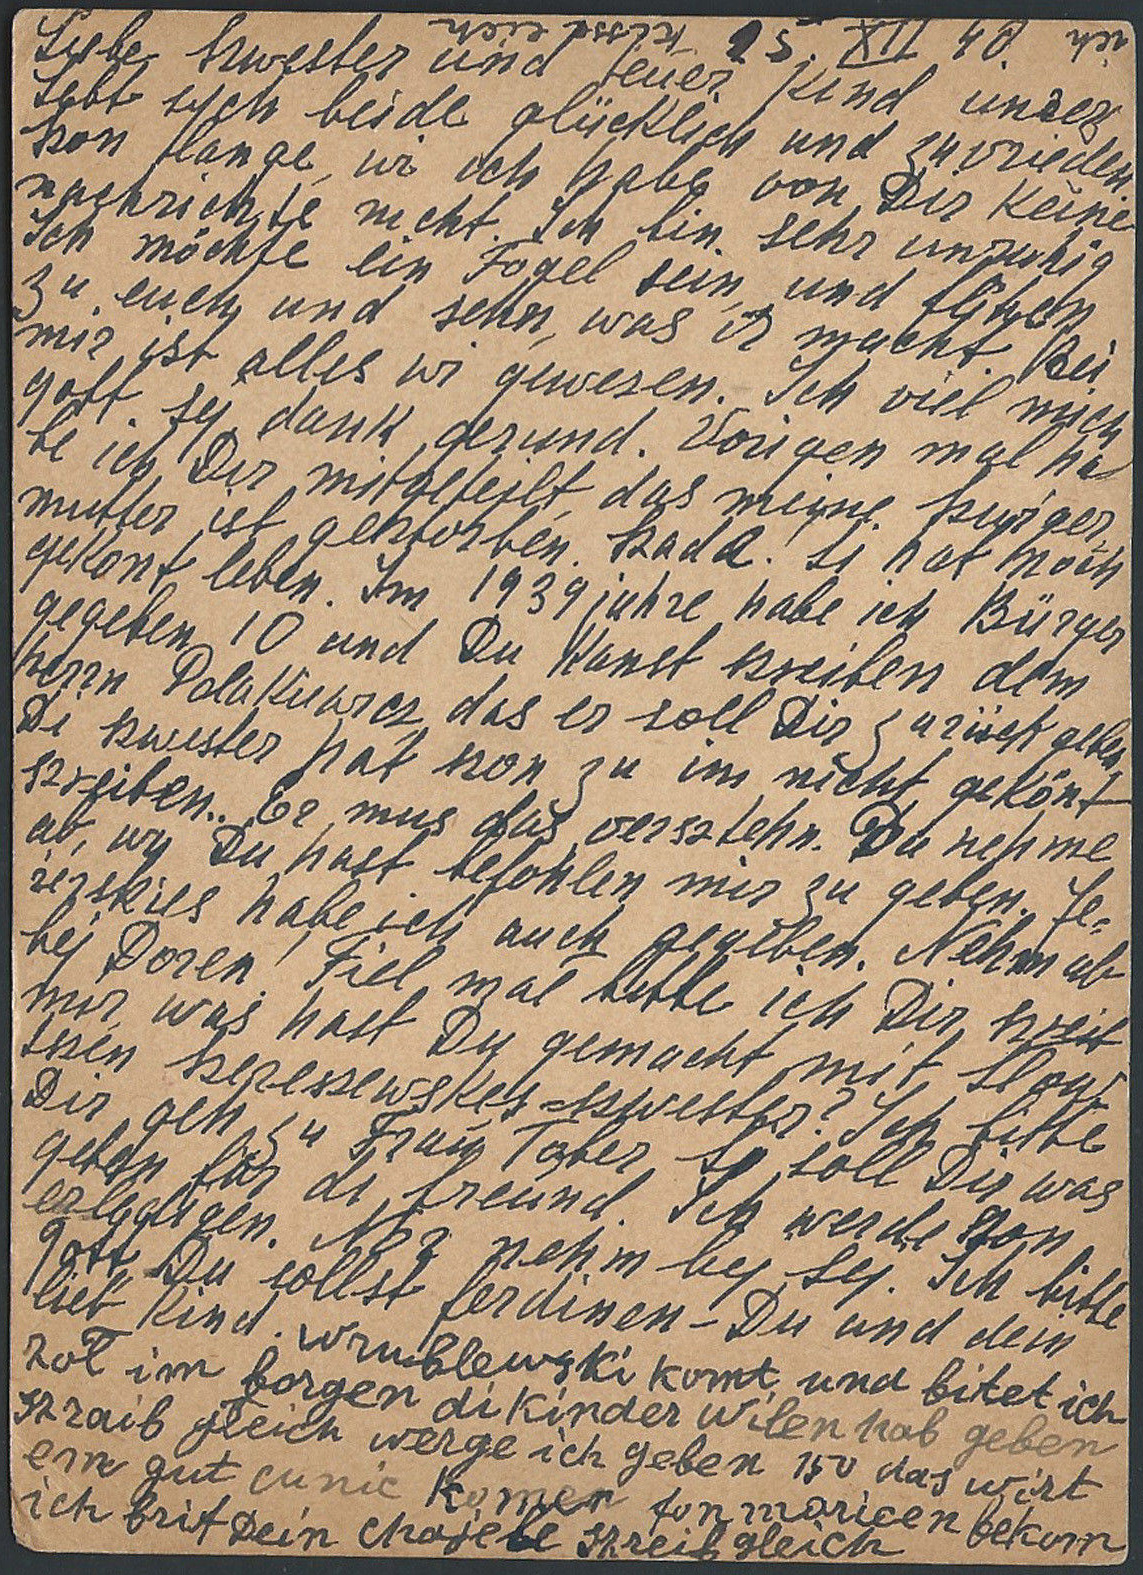 25. XII 40.
Liebe szwester und teuer Kind unser
Lebt sych beide glücklich und zuvrieden.
szon lange, wi ich habe von Dir Keine
nachrichte nicht. Ich bin sehr unruhig
Ich möchte ein Fogel sein, und fligen
zu euch und sehn, was ir macht. Bei
mir ist alles wi gewesen. Ich viel mich
gott sej dank gezund. Vorigen mal ha=
be ich Dir mitgeteilt, das meine szwiger=
mutter ist gesztorben. szade! si hat noch
gekont leben. Im 1939 jahre habe ich Bürger
gegeben 10 und Du Kanst szreiben dem
herrn Polakiewicz, das er soll Dir zurück geben,
Di szwester hat szon zu im nicht gekönt
szreiben.. Er mus das versztehn. Du nehme
ab, wy Du hast befohlen mir zu geben. Je=
rerskies habe ich auch gegeben. Nehm ab
bej Doren! Fiel mal bitte ich Dir szreib
mir was hast Du gemacht mit
szwester? Ich bitte
Dir geh zu Frau Taber sy soll Dir was
geben für di freund. Ich werde szon
erledigen. nehm bej sej. Ich bitte
gott Du sollst ferdinen – Du und dein
lieb Kind. wrublewski komt und bitet ich
zol im borgen di Kinder wilen hab geben
szraib gleich werge ich geben 150 das wirt
em gut cunic Komen fon moricen bekom
ich brif Dein chajebe szreib gleich
ich
kisse eich